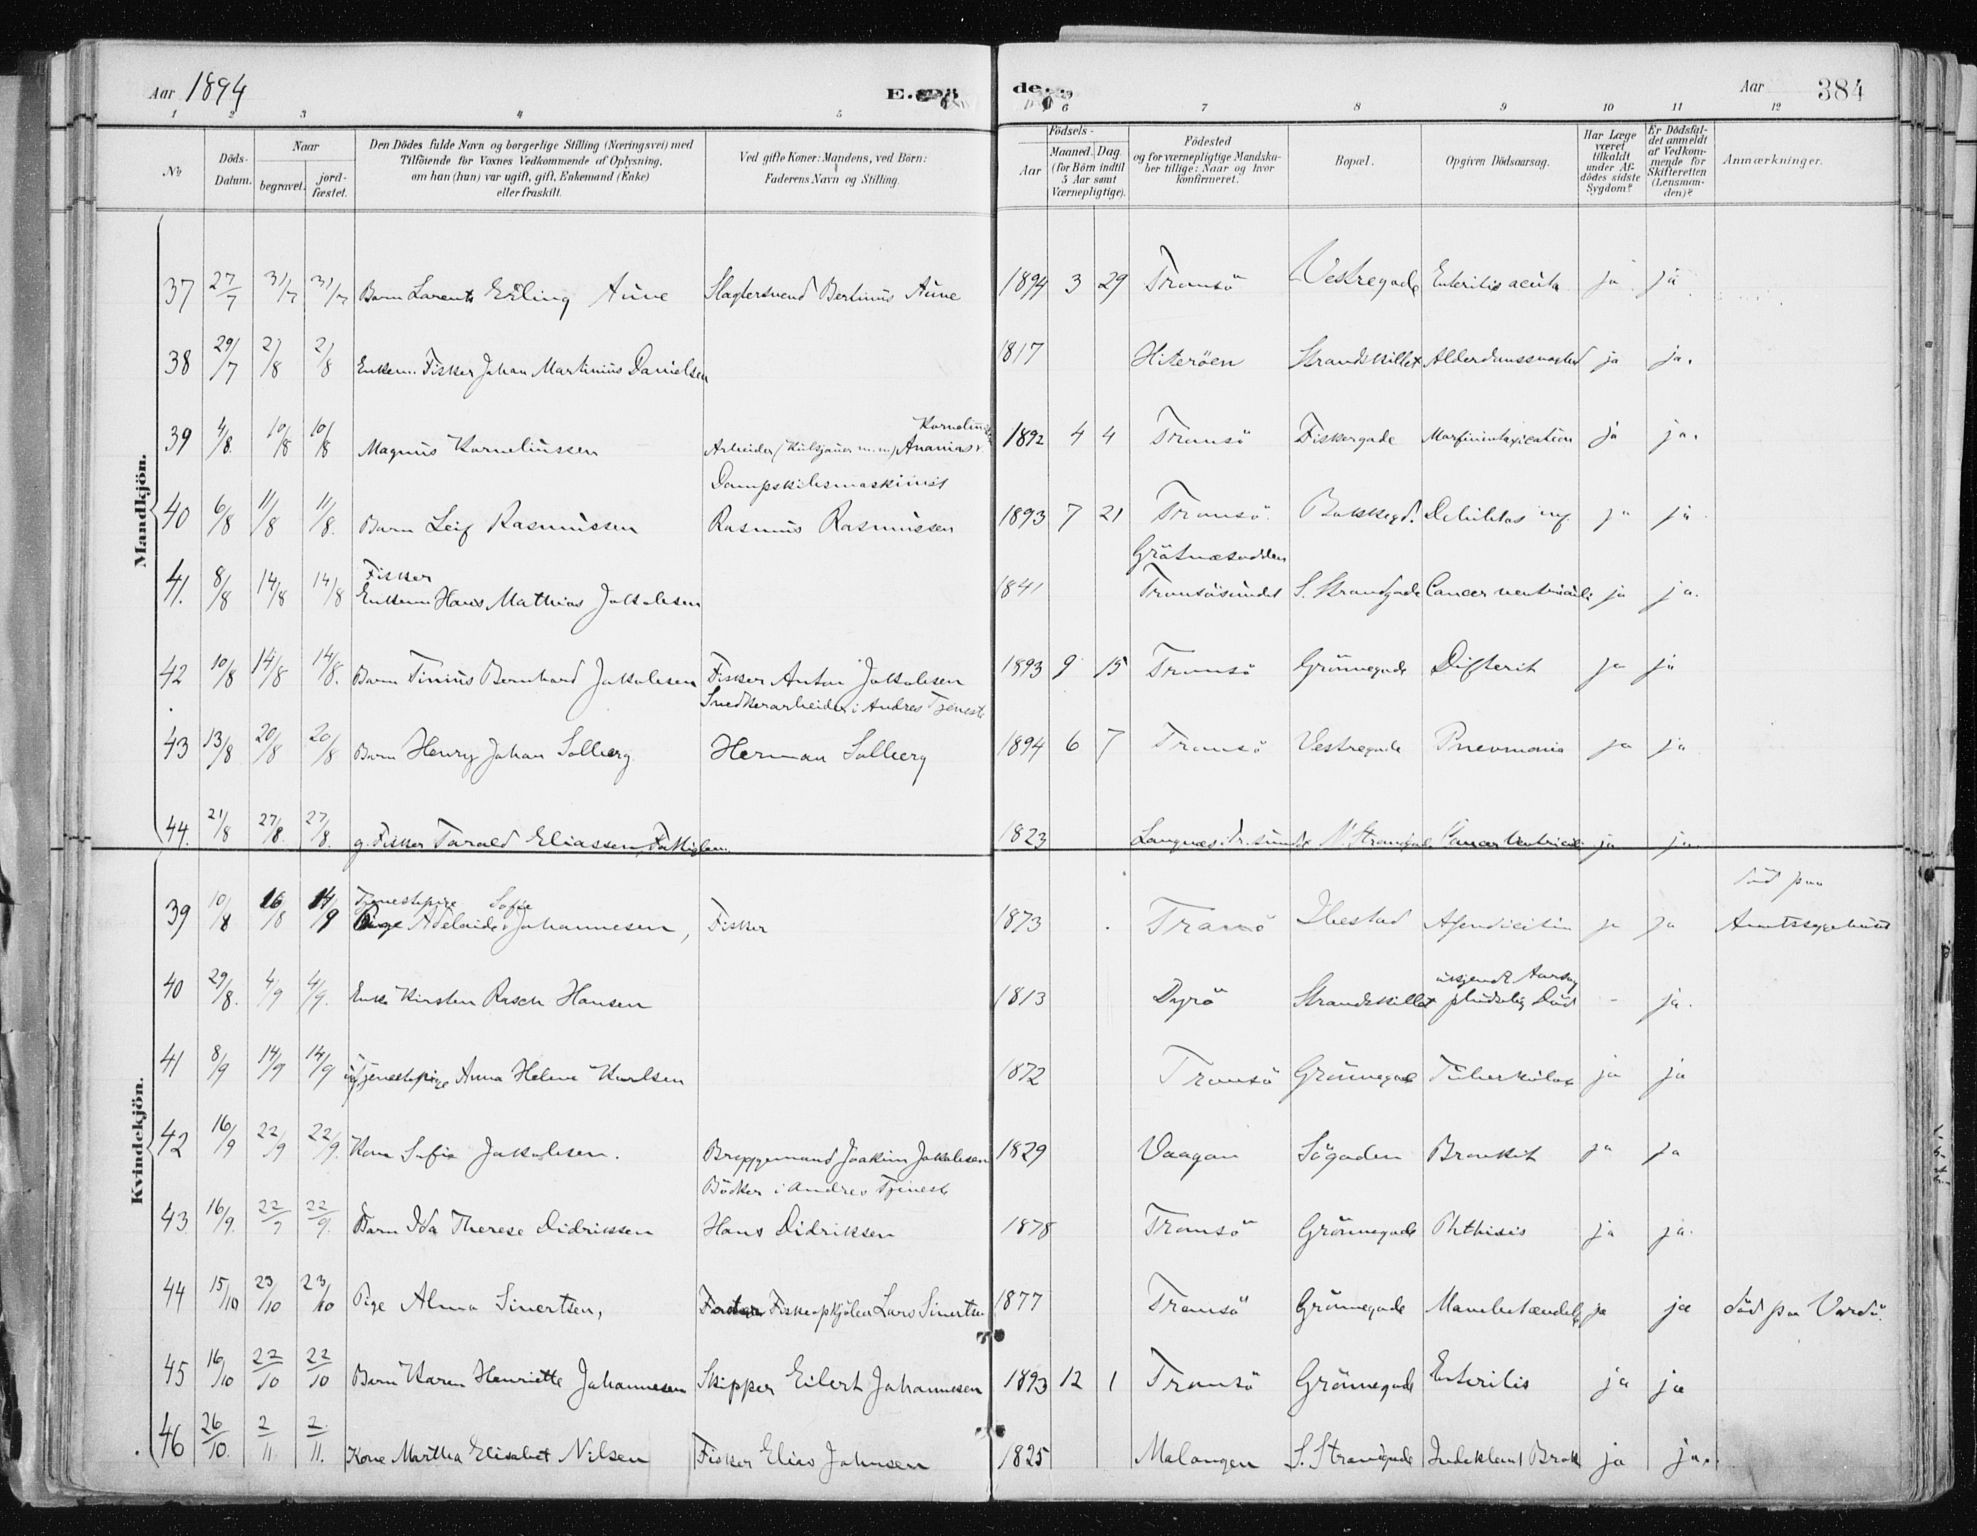 Aar 1894
Aar 384
1 2 3 4 5 6 7 8 9 10 11 12
№
Döds-Datum.
Naar
begravet.
jord-fæstet.
Den Dödes fulde Navn og borgerlige Stilling (Næringsvei) med
Tilföiende for Voxnes Vedkommende af Oplysning,
om han (hun) var ugift, gift, Enkemand (Enke)
eller fraskilt.
Ved gifte Koner: Mandens, ved Börn:
Faderens Navn og Stilling.
Födsels-
Aar
Maaned. Dag.
(for Börn indtil
5 Aar samt
Værnepligtige).
Födested
og for værnepligtige Mandska-
ber tillige: Naar og hvor
konfirmeret.
Bopæl.
Opgiven Dödsaarsag.
Har Læge
været
tilkaldt
under Af-
dödes sidste
Sygdom?
Er Dödsfal-
det anmeldt
af Vedkom-
mende for
Skifteretten
(Lensman-
den)?
Anmærkninger.
Mandkjön.
37 27/7 31/7 31/7 Barn Larents Erling Aune Slagtersvend Bertinus Aune 1894 3 29 Tromsö Vestregade Enteritis acuta ja ja
38 29/7 2/8 2/8 Enkem. Fisker Johan Martinius Danielsen 1817 Hiteröen Strandskillet Alderdomssvaghed ja ja.
Kornelius
39 4/8 10/8 10/8 Magnus Korneliussen Arbeider ( m.m) Ananias 1892 4 4 Tromsö Fiskergade Morfinintoxication ja ja.
Dampskibsmaskinist
40 6/8 11/8 11/8 Barn Leif Rasmussen Rasmus Rasmussen 1893 7 21 Tromsö Bakkegd. Debilitas ja ja
Fisker Grötnæsodden
41. 8/8 14/8 14/8 Enkem Hans Mathias Jakobsen 1841 Tromsösundet S. Strandgade Cancer ventriculi ja ja.
42 10/8 14/8 14/8. Barn Tinius Bernhard Jakobsen Fisker Anton Jakobsen 1893 9 15 Tromsö Grönnegade Difterit ja ja
Snedkerarbeider i Andres Tjeneste
43 13/8 20/8 20/8 Barn Henry Johan Solberg Herman Solberg 1894 6 7 Tromsö Vestregade Pneumonia ja ja
44. 21/8 27/8. 27/8. g. Fisker Tarald Eliassen, Fattiglem. 1823 Langnæs i Tr.sundet N. Strandgade Cancer Ventriculi ja ja
Kvindekjön.
Tjenestepige Sofie död paa
39 10/8 16/8 14/9 Pige Adelaide Johannesen, Fisker 1873 Tromsö Ibestad Apendicitis ja ja Amtssygehuset
ukjendt Aarsag
40 29/8. 4/9 4/9. Enke Kirsten Rasch Hansen 1813 Dyrö Strandskillet pludselig Död - ja.
41 8/9 14/9 14/9 ug tjenestepige Anna Helene Karlsen 1872 Tromsö Grönnegade Tuberkulose ja ja
42 16/9 22/9 22/9. Kone Sofie Jakobsen. Bryggemand Joakim Jakobsen 1829 Vaagan Sögaden Bronkit ja ja
Bödker i Andres Tjeneste
43. 16/9. 22/9 22/9. Barn Ida Therese Didriksen Hans Didriksen 1878 Tromsö Grönnegade Phthisis ja ja.
44 15/10 23/10 23/10 Pige Alma Sivertsen, Fiskeopkjöber Lars Sivertsen 1877 Tromsö Grönnegade Mavebetændelse ja ja död paa Vardö.
45 16/10 22/10 22/10 Barn Karen Henriette Johannesen Skipper Eilert Johannesen 1893 12 1 Tromsö Grönnegade Enteritis ja ja
46 26/10. 2/11. 2/11. Kone Martha Elisabet Nilsen Fisker Elias Johnsen 1825 Malangen S. Strandgade Indeklemt Brok ja ja.